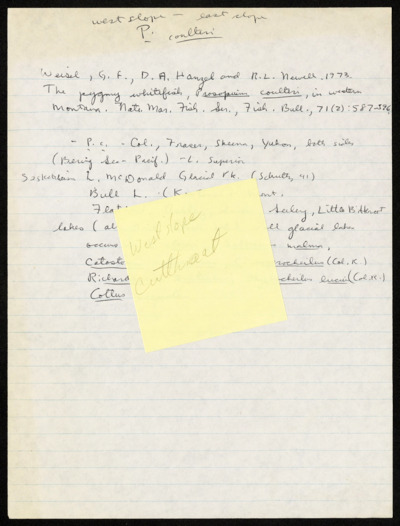 west slope - east slope
P. coulteri
Weisel, G. F., D. A. Hanzel and R. L. Newell. 1973.
The pygmy whitefish, Prosopium coulteri, in western
Montana. Natl. Mar. Fish. Ser., Fish. Bull., 71(2): 587-596
- P. c. - Col., Frazer, Skeena, Yukon, both sides
(Bering Sea - Pacif.) - L. Superior
L. McDonald Glacial Pk. (Schultz, 41)
Bull L. (K
Seeley, Little Bitterroot
lakes (
glacial lakes
occurs
Catosto
(Col. R.)
Richard
(Col. R.)
Cottus
West slope
Cutthroat